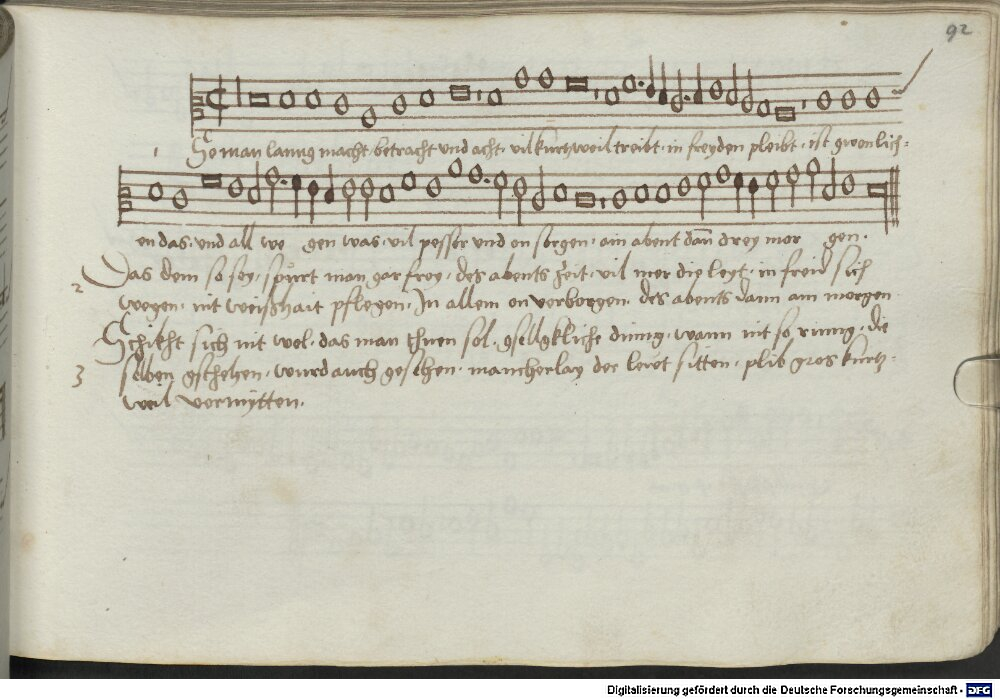 92
So man lanng macht · betracht und acht · vil kurtzweil treibt · in freyden pleibt · ist gwonlich=
en das · und all we gen was · vil pesser und on sorgen · ain abent dan̄ drey mor gen ·
2 Das dem so sey · spürt man gar frey · des abents Zeit · vil mer die leyt · in freid sich
wegen · nit weißhait pflegen · In allem on verborgen · des abents dann am morgen
3 Schikht sich nit wol · das man thuen sol · gsellgkliche dinng · wann nit so rinng · die
selben gschehen · wurd auch gesehen · mancherlay der leüt sitten · plib gros kurtz=
weil vermytten ·
Digitalisierung gefördert durch die Deutsche Forschungsgemeinschaft - DFG